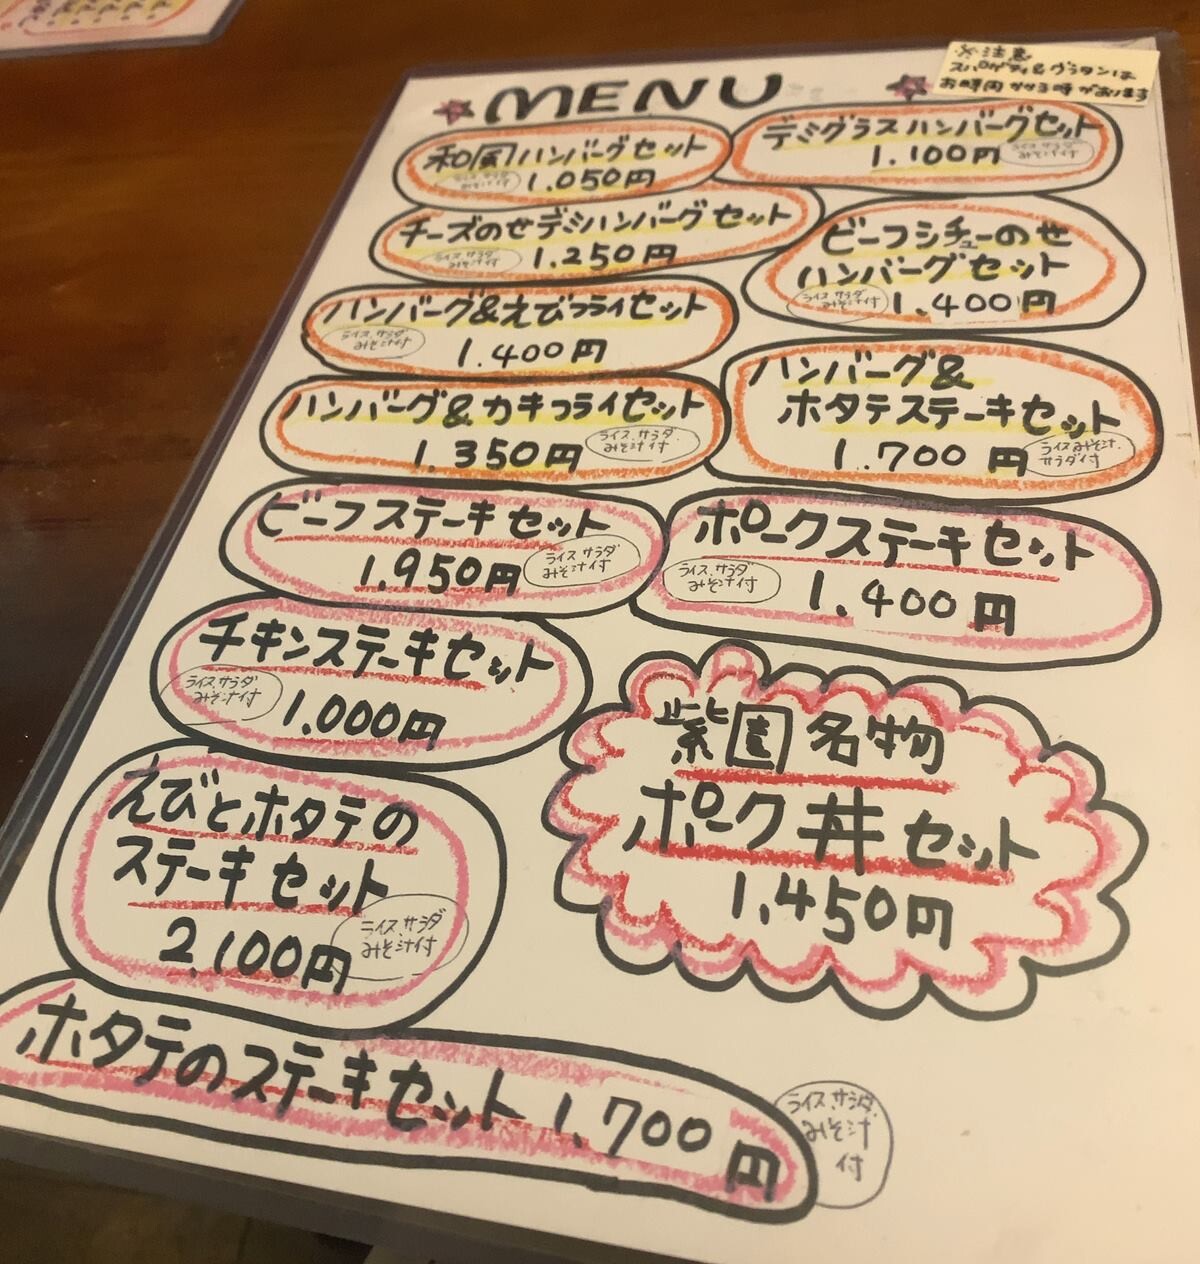 ※注意
スパゲティ&グラタンは
お時間かかる時があります
MENU
和風ハンバーグセット
ライス、サラダ
みそ汁付
1.050円
デミグラスハンバーグセット
1.100円
ライス、サラダ
みそ汁付
チーズのせデミハンバーグセット
ライス、サラダ
みそ汁付
1.250円
ビーフシチューのせ
ハンバーグセット
ライス、サラダ
みそ汁付
1.400円
ハンバーグ&えびフライセット
ライス、サラダ
みそ汁付
1.400円
ハンバーグ&
ホタテステーキセット
1.700円
ライスみそ汁、
サラダ付
ハンバーグ&カキフライセット
1.350円
ライス、サラダ、
みそ汁付
ビーフステーキセット
1.950円
ライス、サラダ
みそ汁付
ポークステーキセット
ライス、サラダ
みそ汁付
1.400円
チキンステーキセット
ライス、サラダ
みそ汁付
1.000円
紫園名物
ポーク丼セット
1,450円
えびとホタテの
ステーキセット
2,100円
ライス、サラダ
みそ汁付
ホタテのステーキセット 1,700円
ライス、サラダ、
みそ汁
付